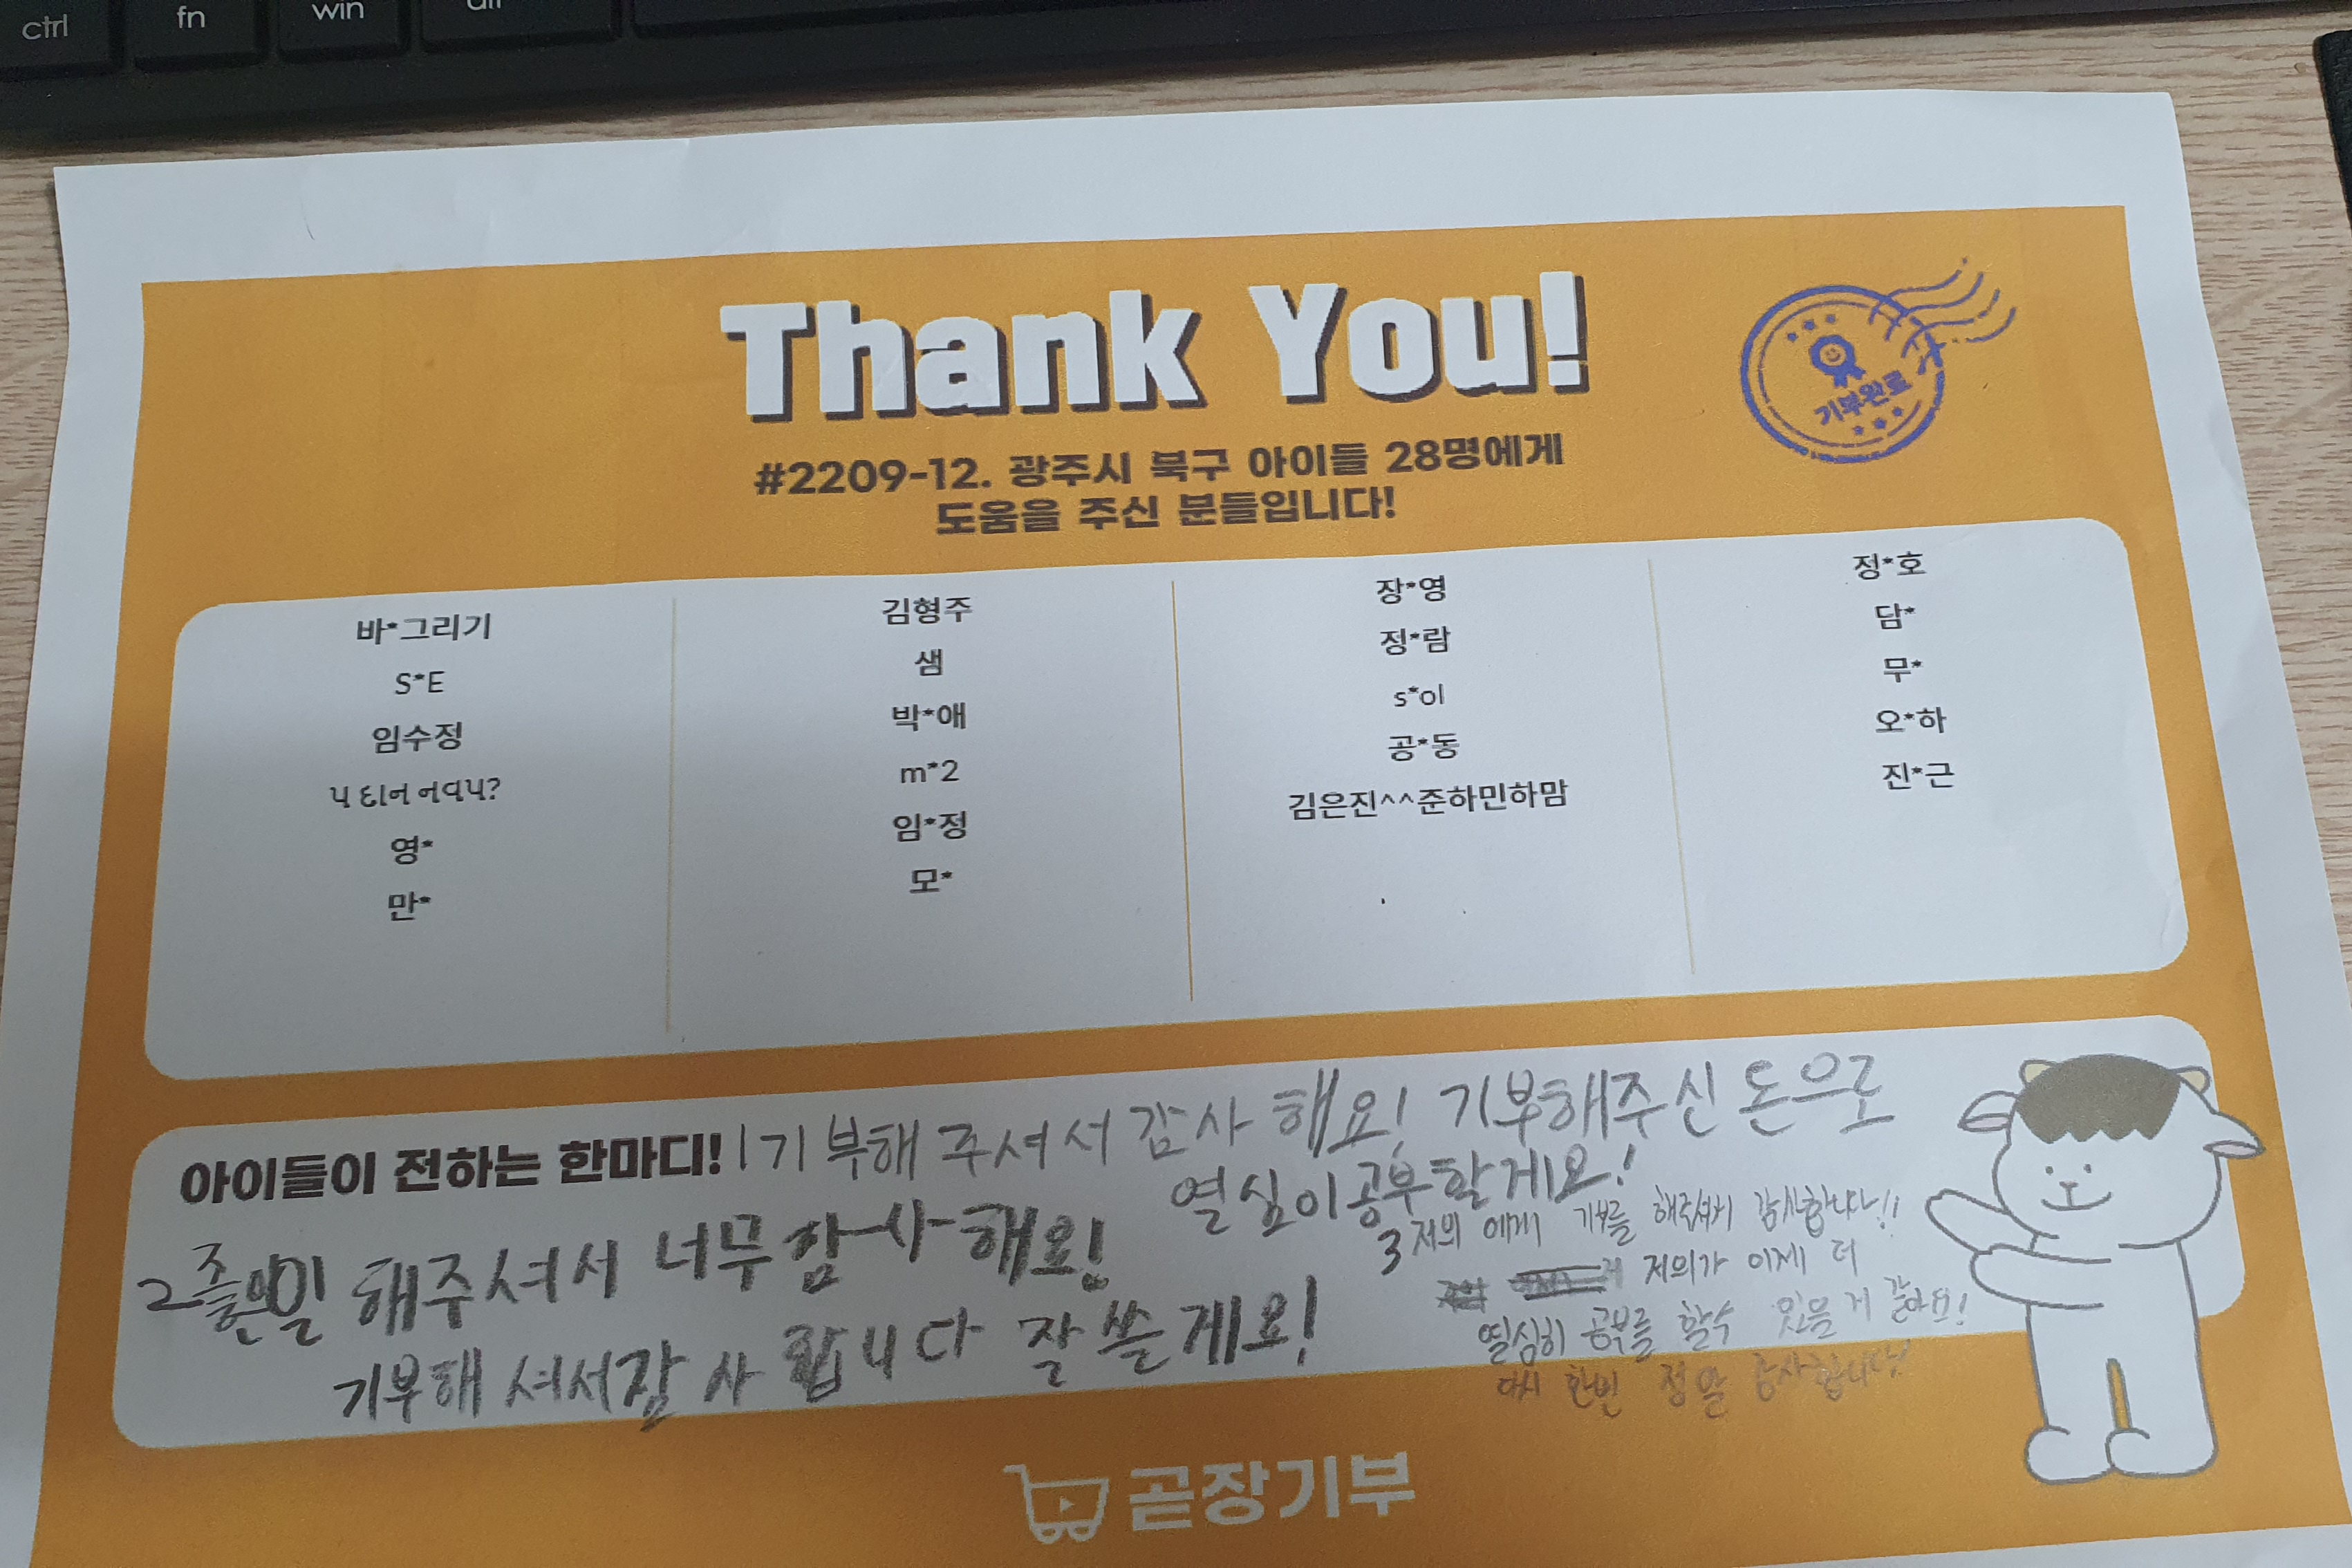 ctrl
fn
win
alt
Thank You!
기부완료
#2209-12. 광주시 북구 아이들 28명에게
도움을 주신 분들입니다!
바*그리기
S*E
임수정
૫ દાન નવ૫?
영*
만*
김형주
샘
박*애
m*2
임*정
모*
장*영
정*람
s*ol
공*동
김은진^^준하민하맘
정*호
담*
무*
오*하
진*근
아이들이 전하는 한마디!
1 기부해 주셔서 감사 해요! 기부해주신 돈으로
열심이공부할게요!
2 좋은일 해주셔서 너무 감사해요!
기부해 셔서감 사 합니다 잘 쓸게요!
3 저의 에게 기부를 해주셔서 감사합니다!!
저의가 이제 더
열심히 공부를 할수 있을 거 같아요!
다시 한번 정말 감사합니다!
곧장기부